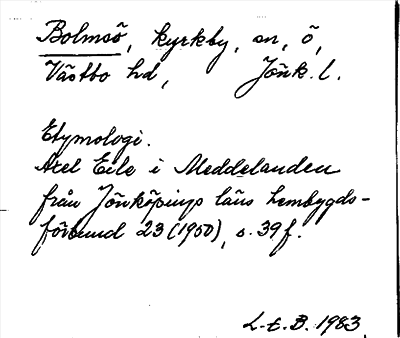 Bolmsö, kyrkby, sn, ö,
Västbo hd, Jönk. l.
Etymologi.
Axel Eile i Meddelanden
från Jönköpings läns hembygds-
förbund 23 (1950), s. 39 f.
L.-E. B. 1983